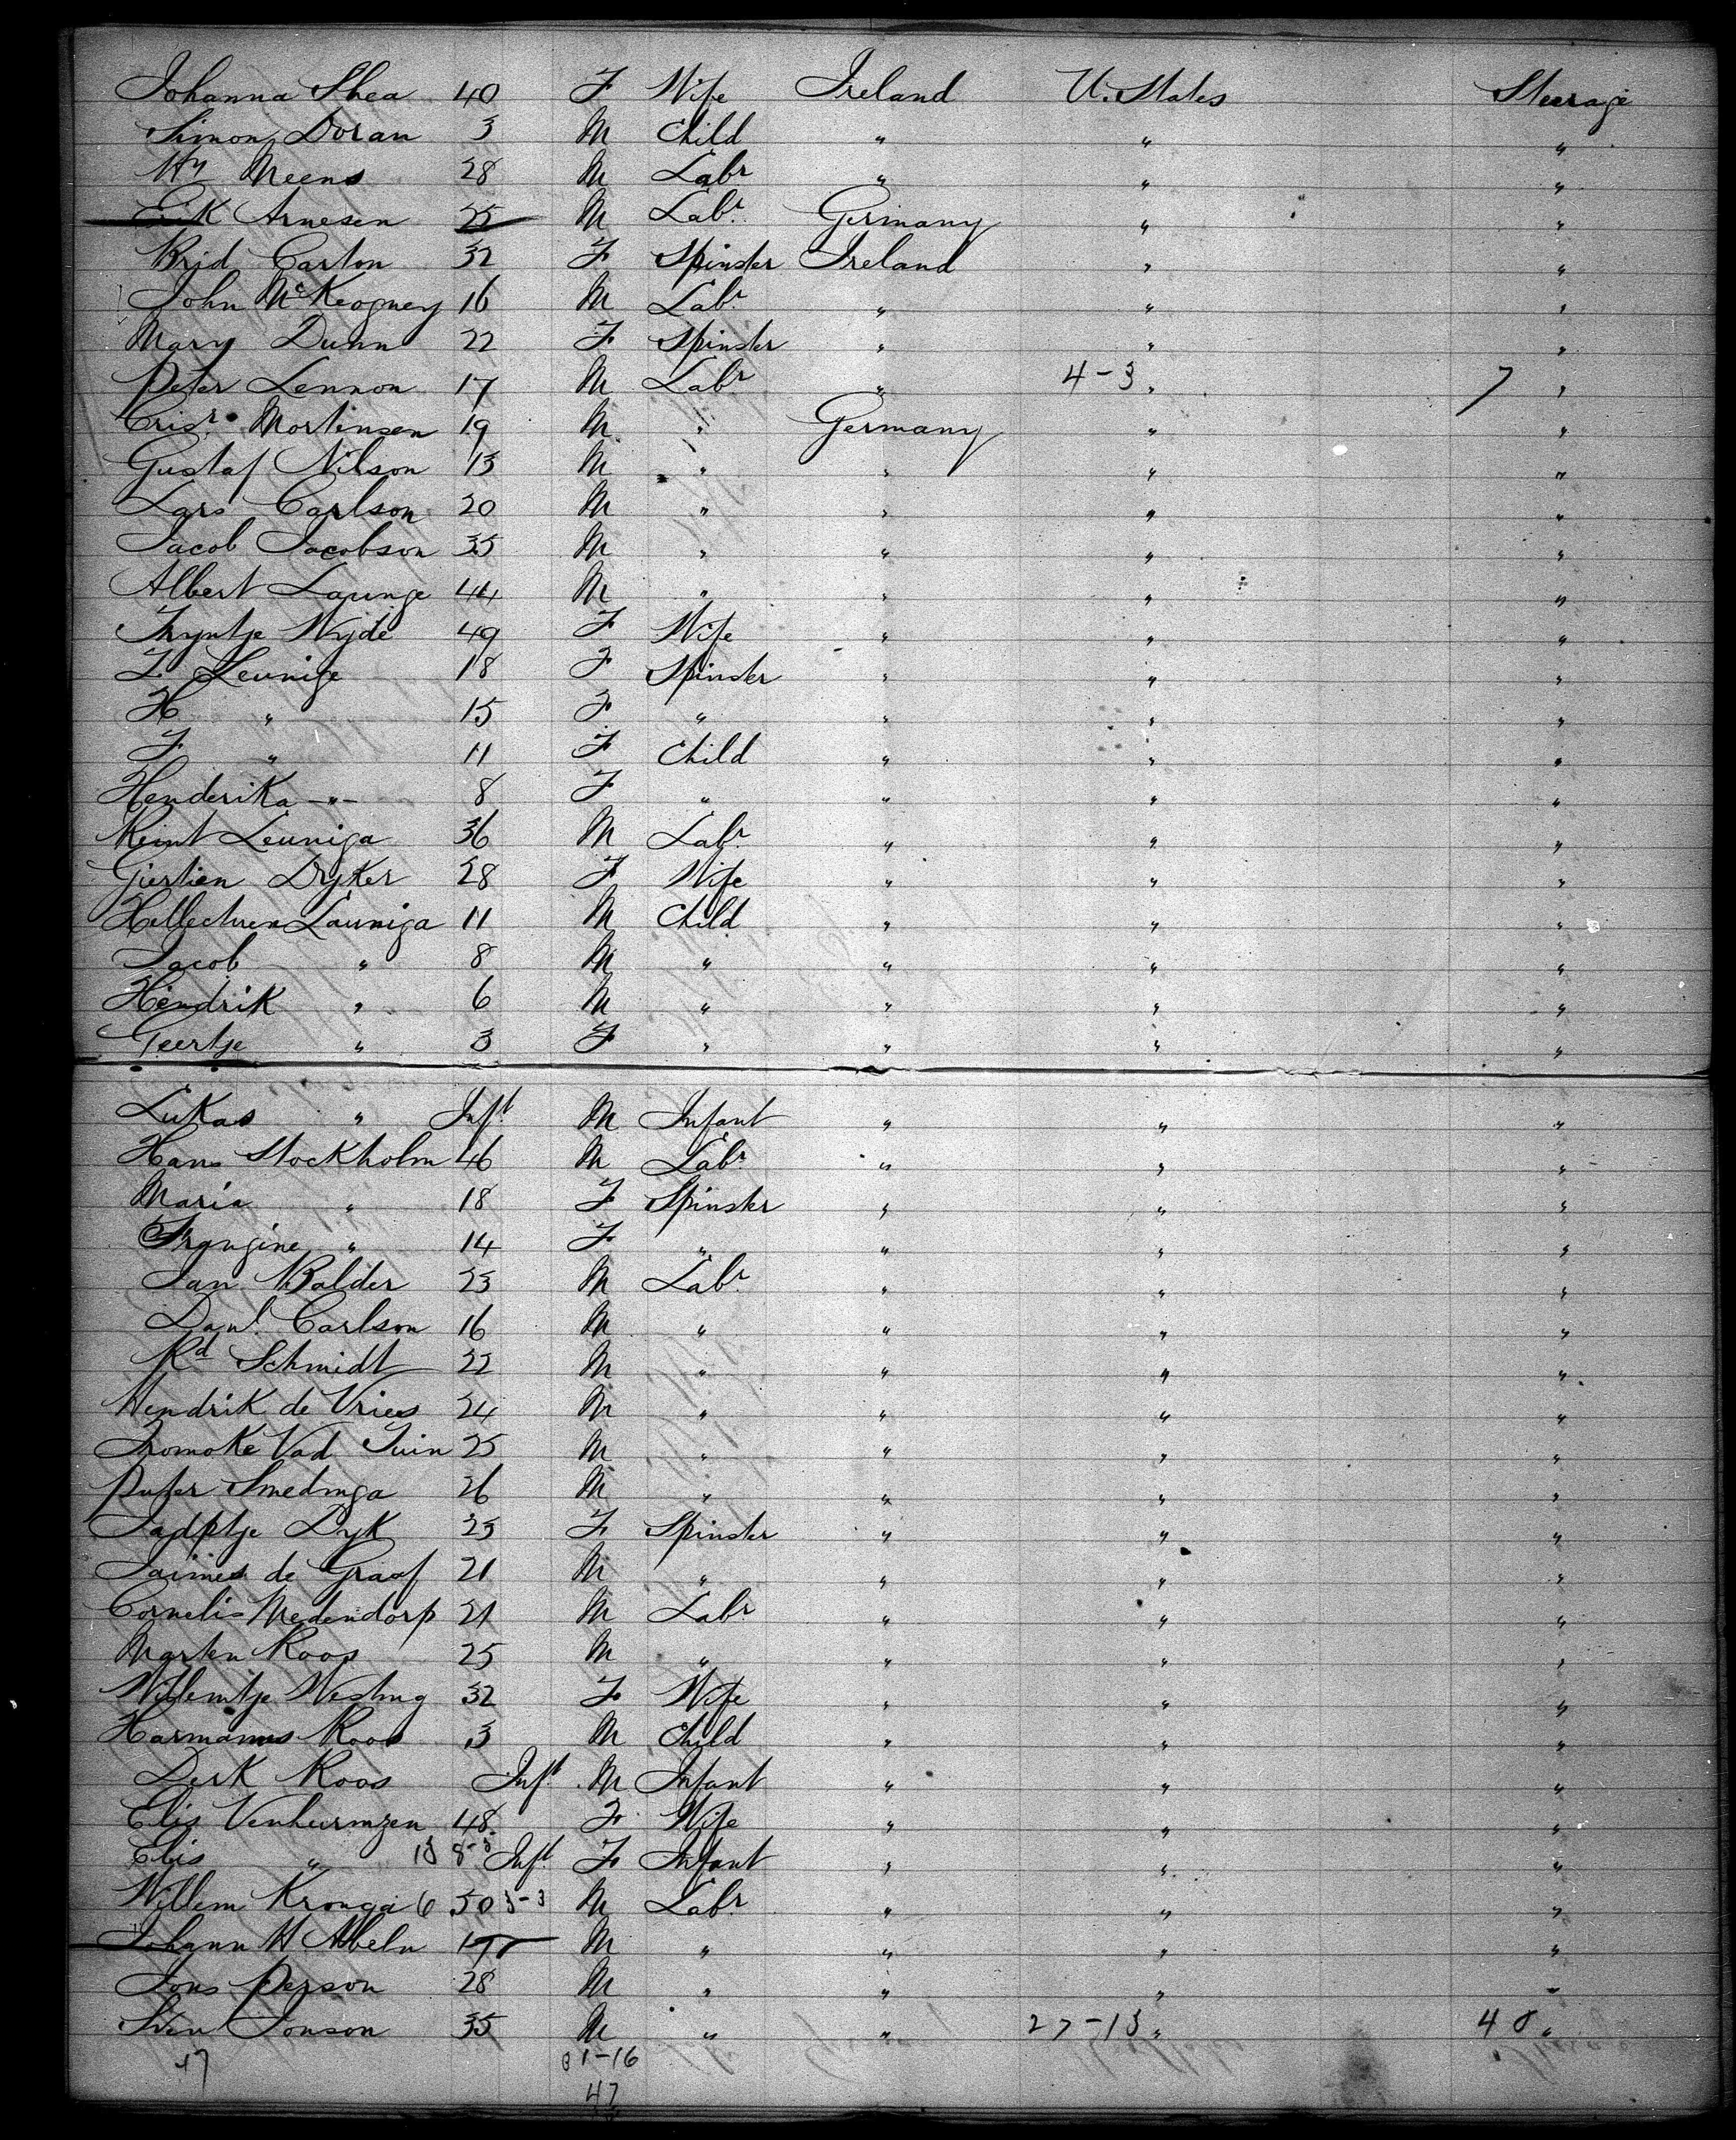 Johanna Shea 40 F Wife Ireland U. States Steerage
Simon Doran 3 M Child " " "
Wm Meens 28 M Labr " " "
Erik Arnesen 25 M Labr Germany " "
Brid Carton 32 F Spinster Ireland " "
John McKeogney 16 M Labr " " "
Mary Dunn 22 F Spinster " " "
Peter Lennon 17 M Labr " 4-3 " 7 "
Crisr Mortinsen 19 M " Germany " "
Gustaf Nilson 13 M " " " "
Lars Carlson 20 M " " " "
Jacob Jacobson 35 M " " " "
Albert Launge 44 M " " " "
Thyntje Wyde 49 F Wife " " "
L Leunige 18 F Spinster " " "
H " 15 F " " " "
F " 11 F Child " " "
Henderika -"- 8 F " " " "
Reint Leuniga 36 M Labr " " "
Giertien Dyker 28 F Wife " " "
Launiga 11 M Child " " "
Jacob " 8 M " " " "
Hendrik " 6 M " " " "
Geertje " 3 F " " " "
Lukas " Inft M Infant " " "
Hans Stockholm 46 M Labr " " "
Maria " 18 F Spinster " " "
" 14 F " " " "
Jan Bolder 23 M Labr " " "
Danl Carlson 16 M " " " "
Rd Schmidt 22 M " " " "
Hendrik de Vries 24 M " " " "
Tromoke Vad Tuin 25 M " " " "
Smedinga 26 M " " " "
Dyk 23 F Spinster " " "
de Graaf 21 M " " " "
Cornelis Medendorp 21 M Labr " " "
Marten Roos 25 M " " " "
Willemtje Westing 32 F Wife " " "
Harmanus Roos 3 M Child " " "
Derk Roos Inft M Infant " " "
Elis Venhurmzen 48 F Wife " " "
Elis " 13 8-5 Inft F Infant " " "
Willem Kronga 6 50 3-3 M Labr " " "
Johann H Abeln 19 M " " " "
Jons Person 28 M " " " "
Sven Jonson 35 M " " 27-13 " 40 "
47 31-16
47